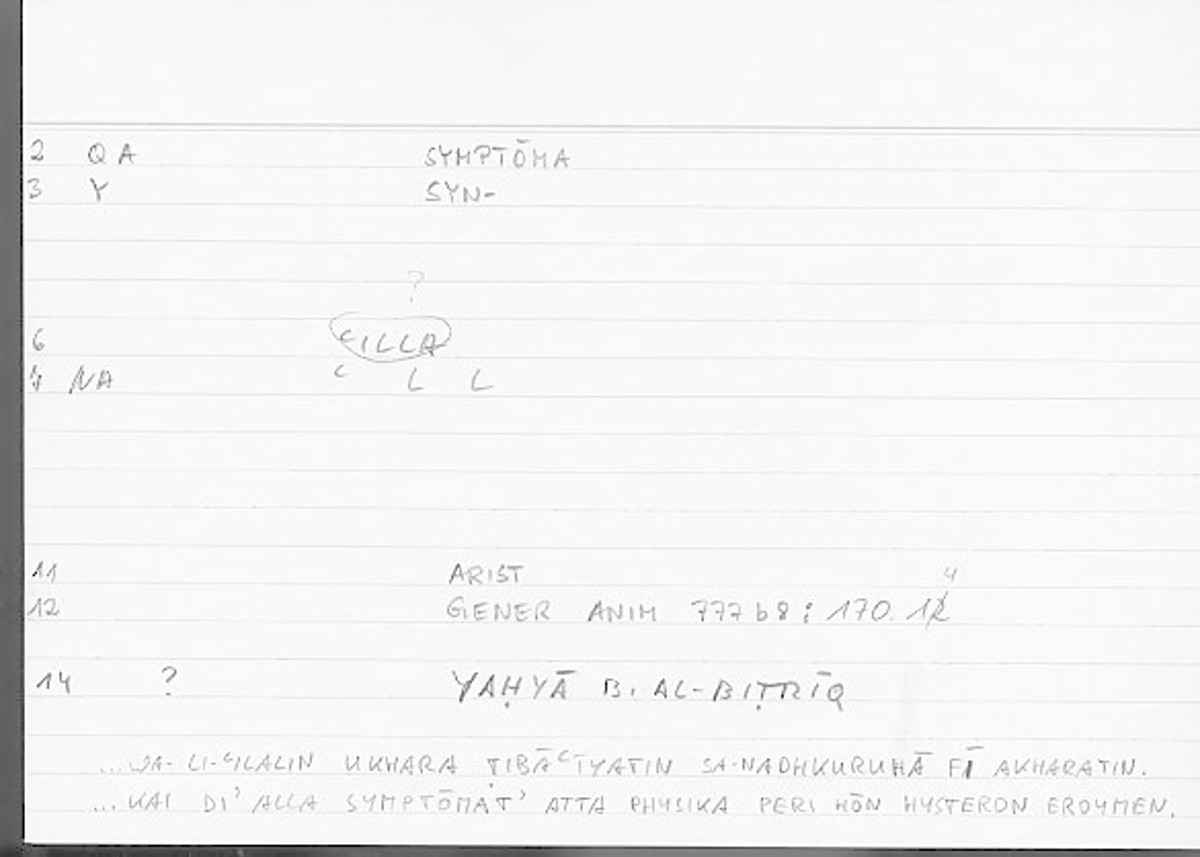 2 QA SYMPTŌMA
3 Y SYN-
?
6 ʿILLA
7 NA ʿ L L
11 ARIST
4
12 GENER ANIM 777 b 8 : 170. 12
14 ? YAḤYĀ B. AL-BIṬRĪQ
...WA-LI-ʿILALIN UKHARA ṬIBĀʿĪYATIN SA-NADHKURUHĀ FĪ AKHARATIN.
...KAI DI' ALLA SYMPTŌMAT' ATTA PHYSIKA PERI HŌN HYSTERON EROYMEN.